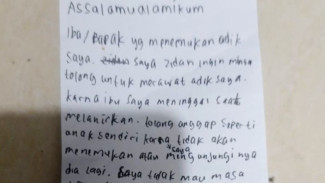 Assalamualaikum
Iba/Bapak yg menemukan adik
saya. zidan saya zidan ingin minta
tolong untuk merawat adik saya.
karna ibu saya meninggal saat
melahirkan. tolong anggap seperti
anak sendiri karna tidak akan
menemukan atau saya mengunjungi nya
dia lagi. Saya tidak mau masa